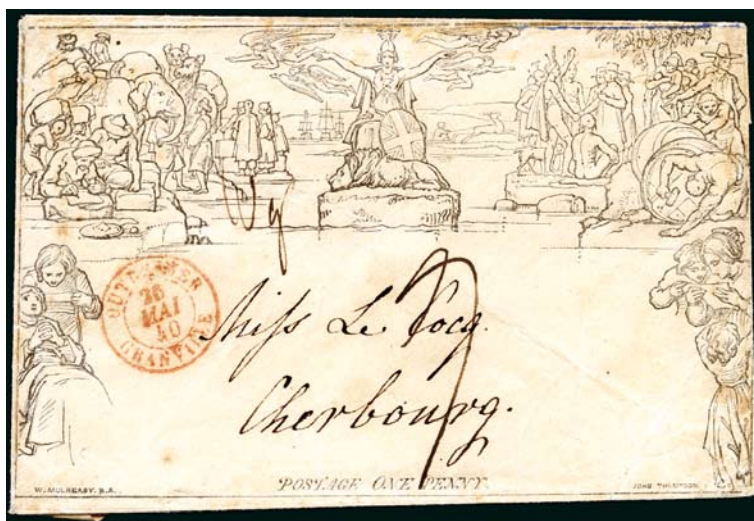 OUTRE-MER
26
MAI
40
GRANVILLE
Miss Le Cocq.
Cherbourg.
W. MULREADY. R.A.
POSTAGE ONE PENNY.
JOHN THOMPSON